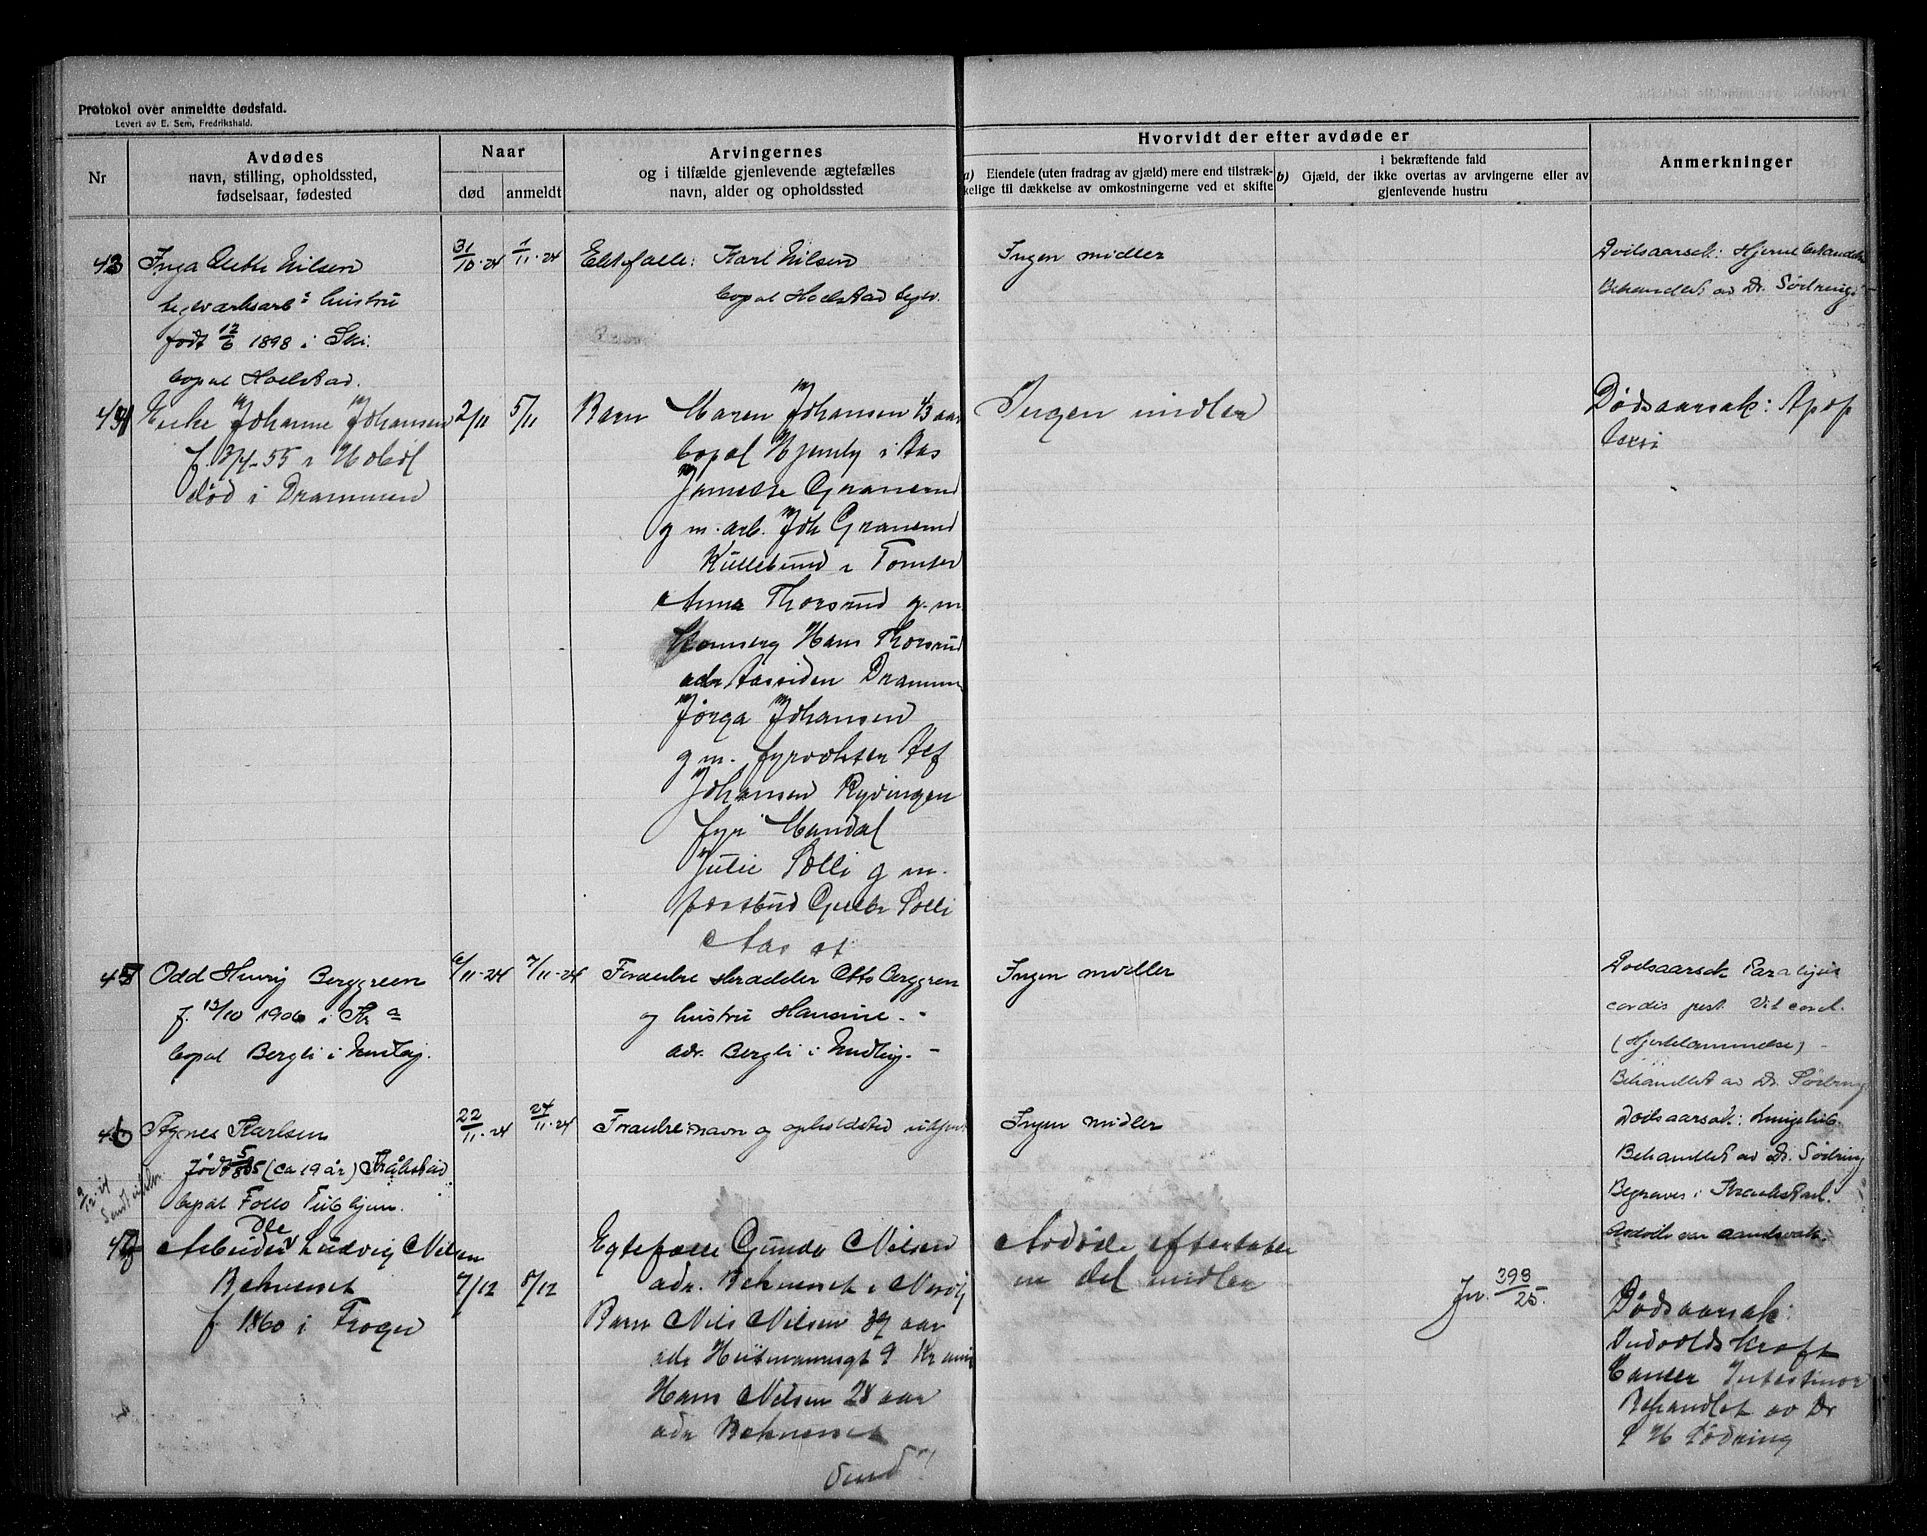 Protokol over anmeldte dødsfald.
Levert av E. Sem, Fredrikshald.
Nr
Avdødes
navn, stilling, opholdssted,
fødselsaar, fødested
Naar
død
anmeldt
Arvingernes
og i tilfælde gjenlevende ægtefælles
navn, alder og opholdssted
Hvorvidt der efter avdøde er
a) Eiendele (uten fradrag av gjæld) mere end tilstræk-
kelige til dækkelse av omkostningerne ved et skifte
i bekræftende fald
b) Gjæld, der ikke overtas av arvingerne eller av
gjenlevende hustru
Anmerkninger
43
Inga Nilsen
teglværksarb^s hustru
født 12/6 1898 i Ski.
bopæl Holstad.
31/10-24
1/11-24
Ektefælle: Karl Nilsen
bopæl Holstad teglv.
Ingen midler
Dødsaarsak:
Behandlet av Dr. Sødring
44
Enke Johanne Johansen
f. 3/4-55 i Hobøl
død i Drammen
2/11
5/11
Barn Maren Johansen 43 aar
bopæl Hjemly i Aas
Granerud
g m. arb. Joh Granerud
Kullebund i Tomter
Anna Thorsrud g. m.
Hans Thorsrud
adr Aassiden Drammen
Jørga Johansen
g m. fyrvokter Alf
Johansen Ryvingen
fyr Mandal
Julie Solli g m.
postbud Solli
Aas st
Ingen midler
Dødsaarsak: Apop
lexsi
45
Odd Henry Berggreen
f. 13/10 1906 i Kr^a
bopæl Bergli i Nordby.
6/11-24
7/11-24
Forældre Skrædder Otto Berggren
og hustru Hansine. -
adr. Bergli i Nordby. -
Ingen midler
Dødsaarsak Paralysis
cordis post. Vit cord.
(Hjertelammelse) -
Behandlet av Dr. Sødring
46
Agnes Karlsen
født 5/5 (ca 19 år) Kråkstad
bopæl Follo Tub hjem.
22/11-24
24/11-24
Forældre: navn og opholdsted
Ingen midler
Dødsaarsak:
Behandlet av Dr. Sødring
Begraves i Kraakstad.
Avdøde var aandsvak.
9/12-24
Sendt
47
Arbeider Ole Ludvig Nilsen
f. 1860 i Trøgst
7/12
8/12
Egtefælle Gunda Nilsen
adr. i Nordby
Barn Nils Nilsen 39 aar
adr 9 Kr ania
Hans Nilsen 28 aar
adr
Send
Avdøde efterlater
en del midler
Jnr. 393/25.
Dødsaarsak:
Indvoldskræft
Cancer Intestinor
Behandlet av Dr
H Sødring